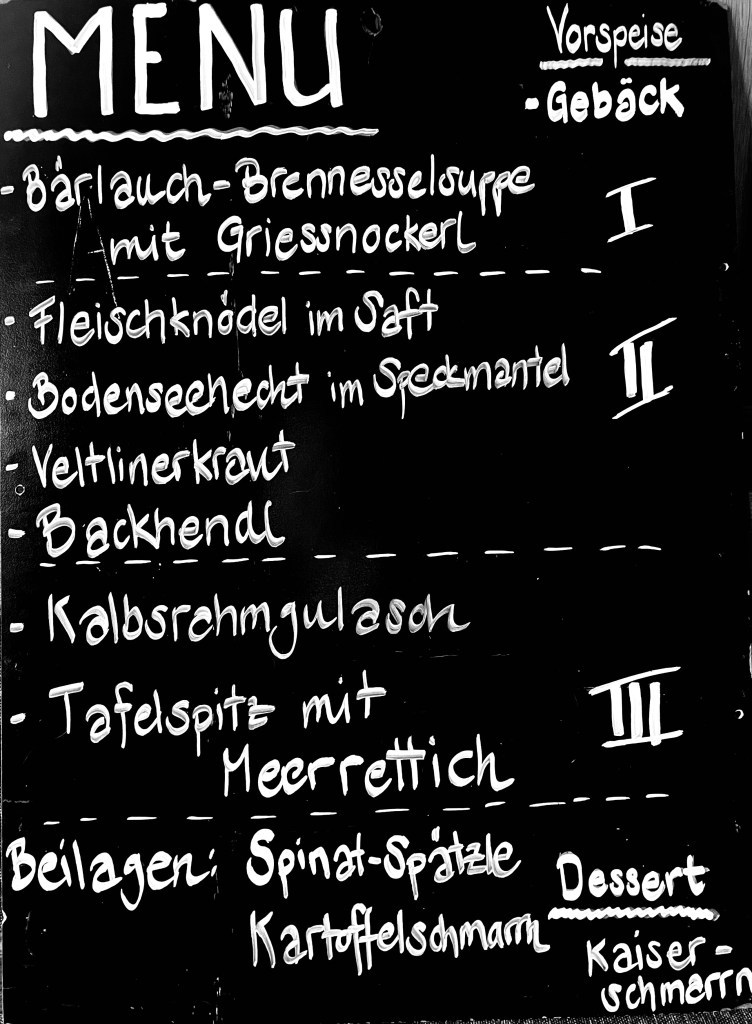 MENU
Vorspeise
- Gebäck
- Bärlauch-Brennesselsuppe
mit Griessnockerl
I
- Fleischknödel im Saft
- Bodenseehecht im Speckmantel
II
- Veltlinerkraut
- Backhendl
- Kalbsrahmgulasch
- Tafelspitz mit
Meerrettich
III
Beilagen: Spinat-Spätzle
Kartoffelschmarrn
Dessert
Kaiser-
schmarrn